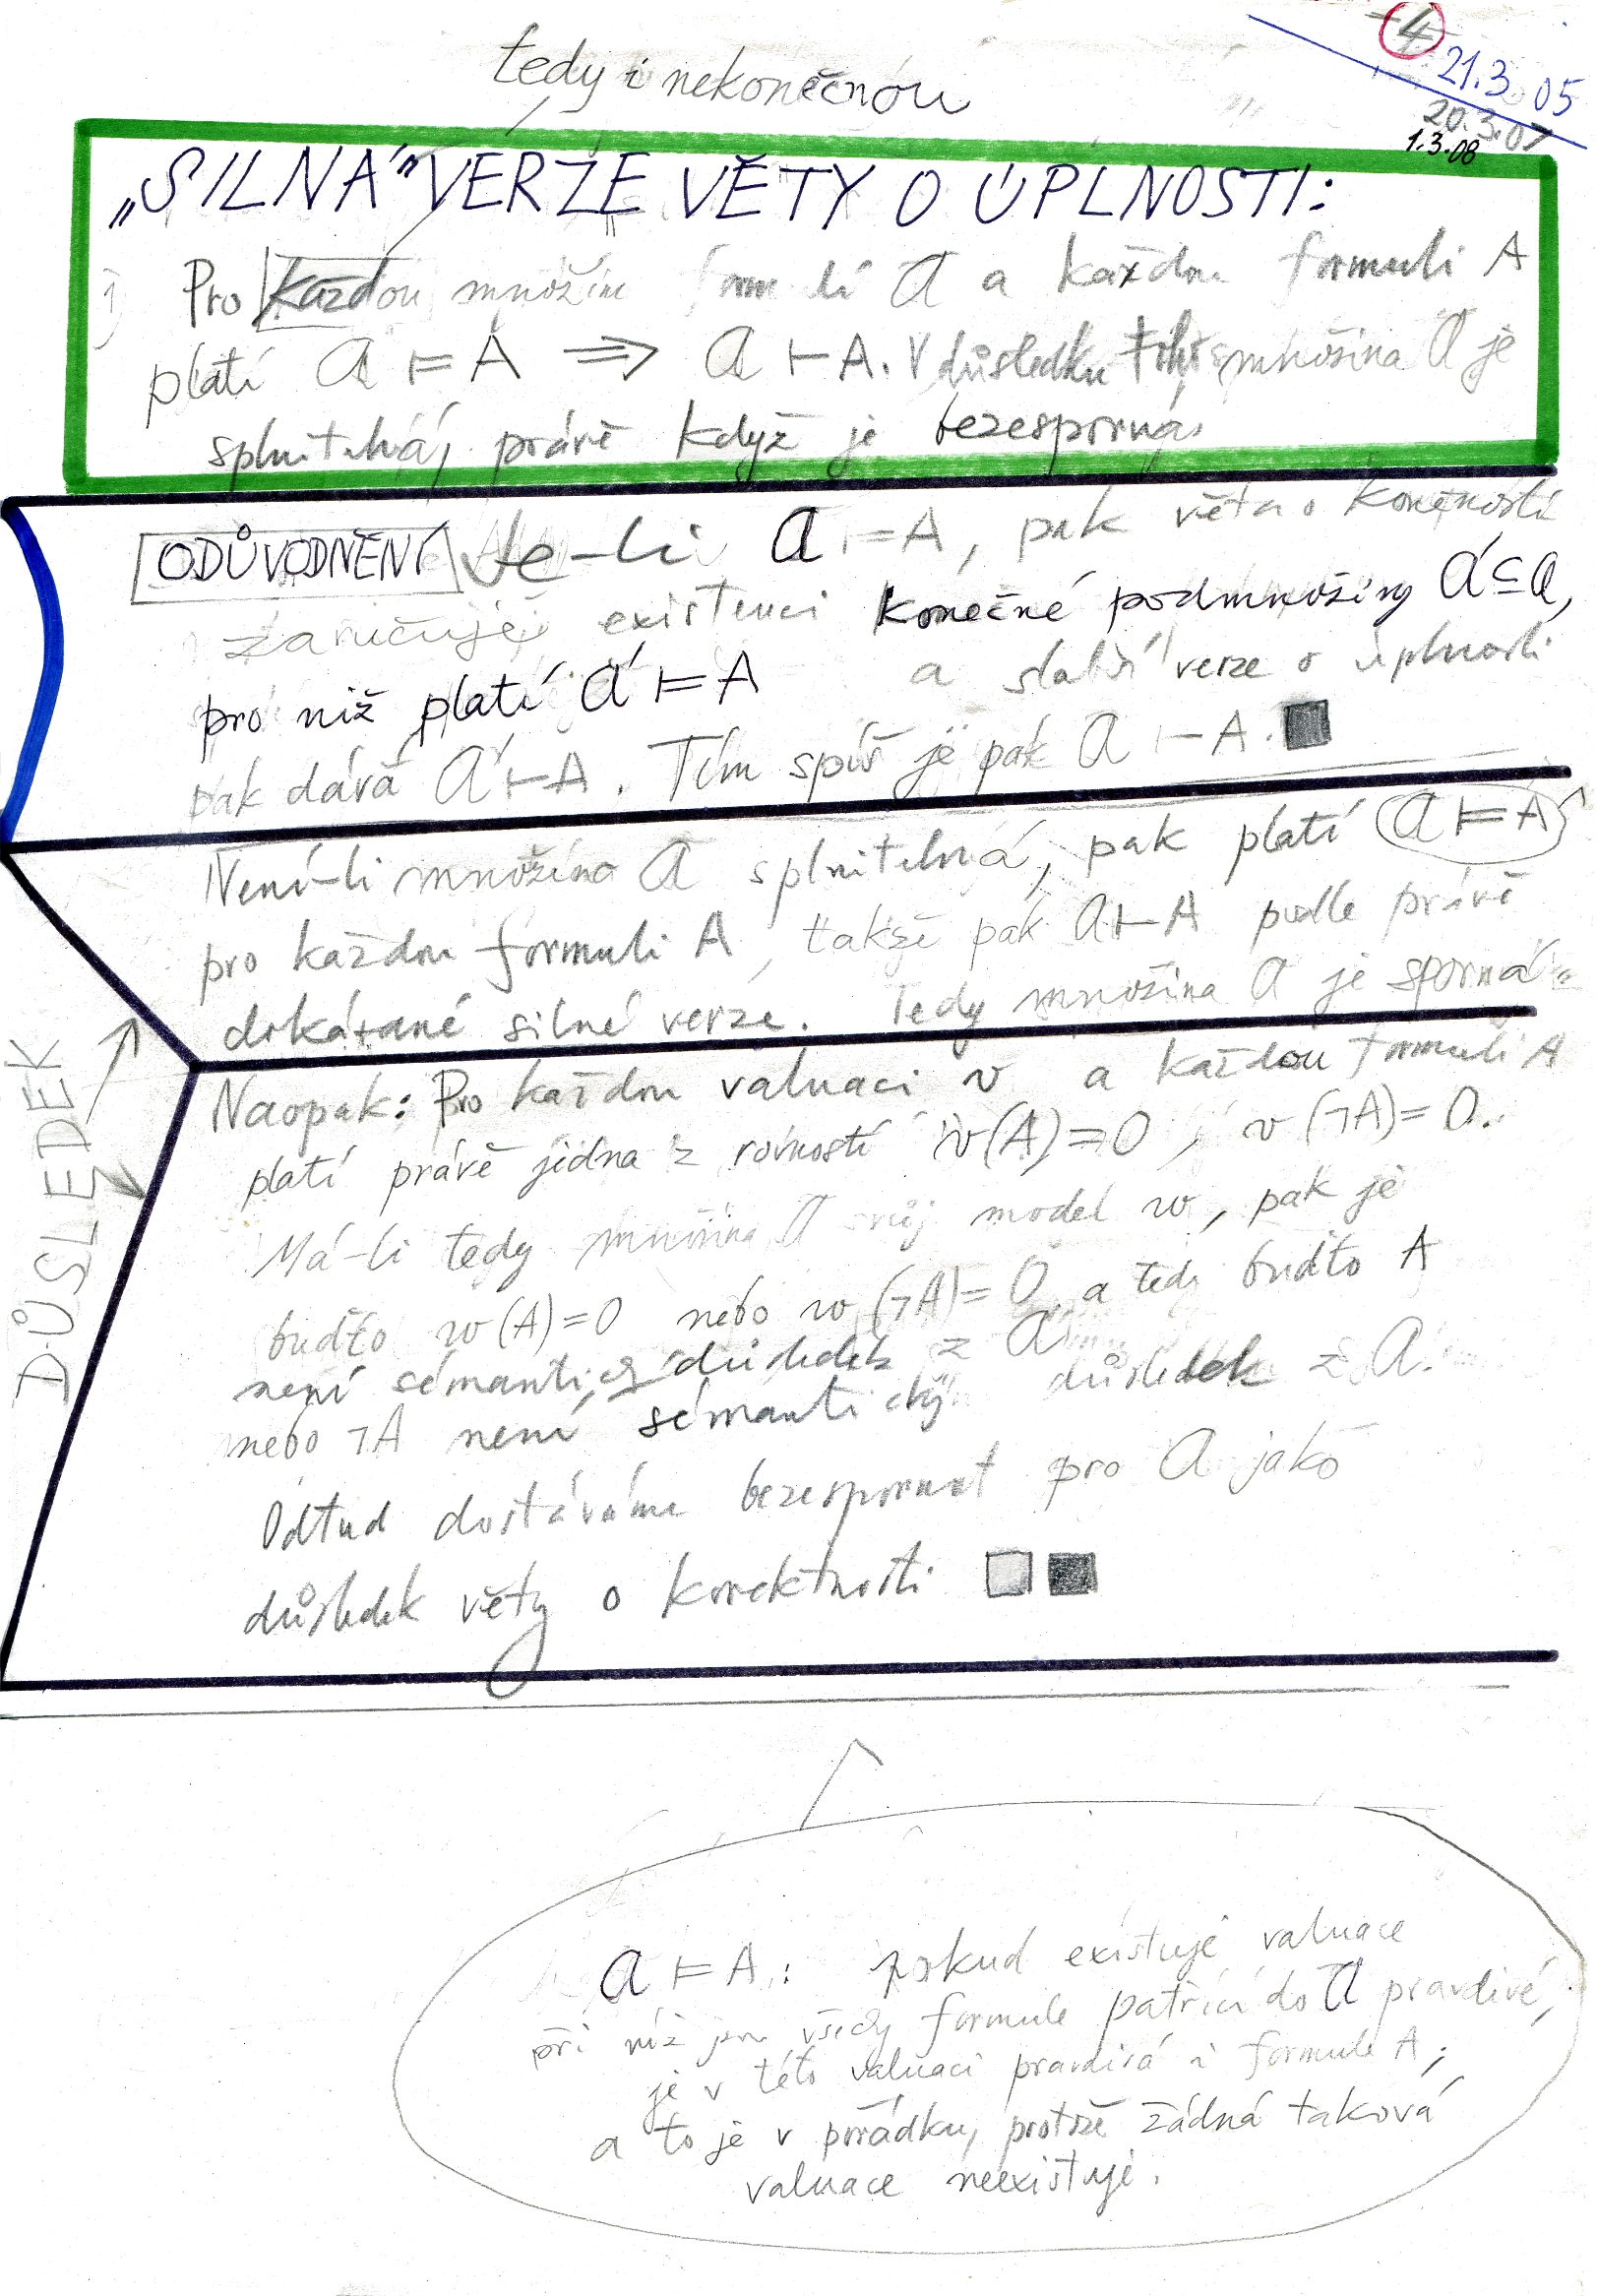 4
21.3.05
20.3.07
1.3.08
tedy i nekonečnou
„SILNÁ" VERZE VĚTY O ÚPLNOSTI:
1) Pro každou množinu formulí 𝒜 a každou formuli A
platí 𝒜 ⊨ A ⟹ 𝒜 ⊢ A. V důsledku toho množina 𝒜 je
splnitelná, právě když je bezesporná.
ODŮVODNĚNÍ Je-li 𝒜 ⊨ A, pak věta o konečnosti
zaručuje existenci konečné podmnožiny 𝒜' ⊆ 𝒜,
pro niž platí 𝒜' ⊨ A a slabší verze o úplnosti
pak dává 𝒜' ⊢ A. Tím spíš je pak 𝒜 ⊢ A.
Není-li množina 𝒜 splnitelná, pak platí 𝒜 ⊨ A
pro každou formuli A, takže pak 𝒜 ⊢ A podle právě
dokázané silné verze. Tedy množina 𝒜 je sporná.
DŮSLEDEK
Naopak: Pro každou valuaci v a každou formuli A
platí právě jedna z rovností v(A)=0, v(¬A)=0.
Má-li tedy množina 𝒜 svůj model w, pak je
buďto w(A)=0 nebo w(¬A)=0, a tedy buďto A
není sémantický důsledek z 𝒜
nebo ¬A není sémantický důsledek z 𝒜.
Odtud dostáváme bezespornost pro 𝒜 jako
důsledek věty o korektnosti
𝒜 ⊨ A: pokud existuje valuace
při níž jsou všechy formule patřící do 𝒜 pravdivé,
je v této valuaci pravdivá i formule A;
a to je v pořádku, protože žádná taková
valuace neexistuje.